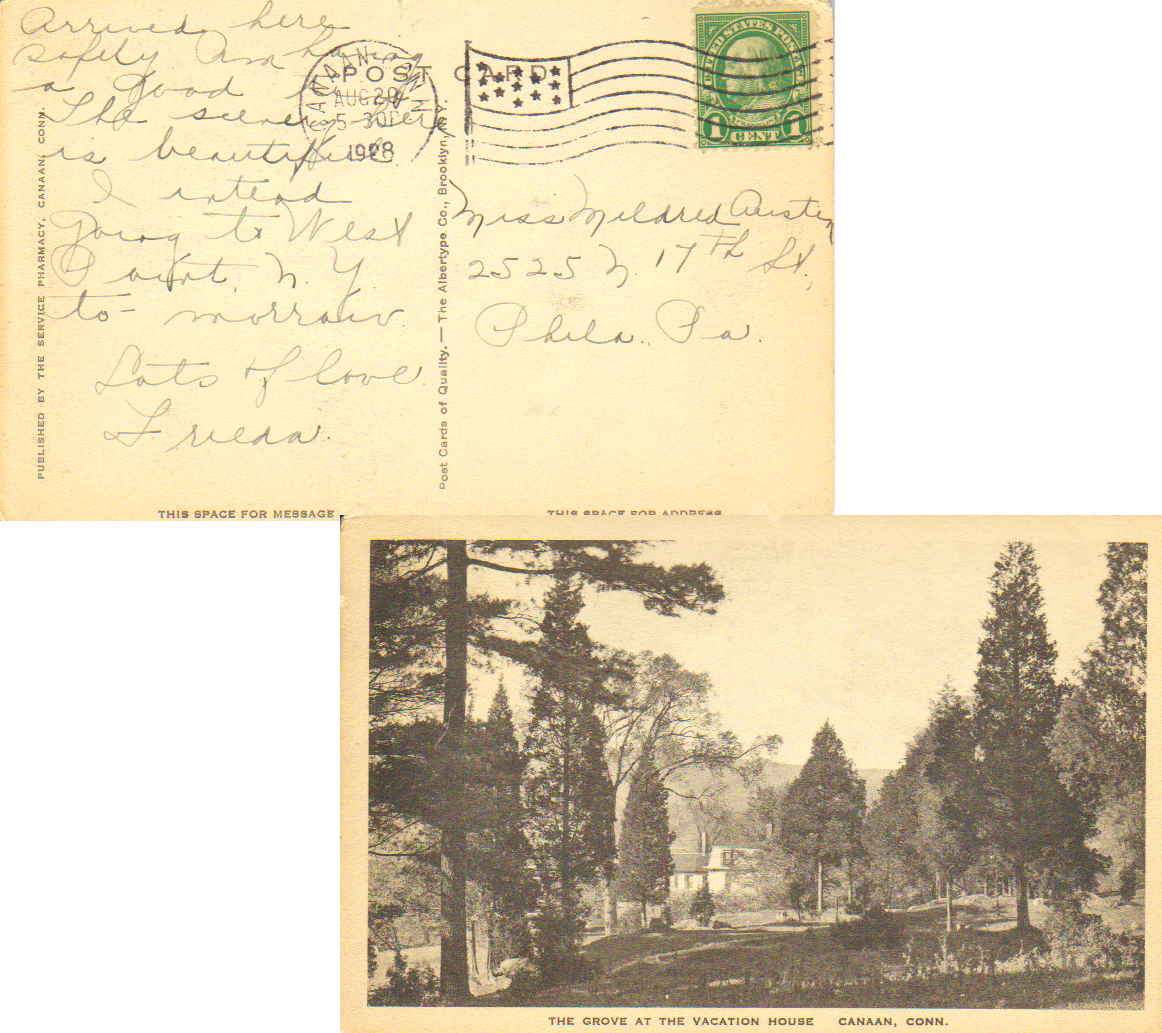 Arrived here
safely Am having
a good
The scenery here
is beautiful
I intend
going to West
Point, N. Y.
to-morrow.
Lots of love
Frieda.
POST CARD
CANAAN
CONN.
AUG 20
5-30P
1928
UNITED STATES POSTAGE
1 CENT 1
Miss Mildred Austin
2525 N. 17th St.,
Phila., Pa.
PUBLISHED BY THE SERVICE PHARMACY, CANAAN, CONN.
Post Cards of Quality. — The Albertype Co., Brooklyn, N.Y.
THIS SPACE FOR MESSAGE
THIS SPACE FOR ADDRESS
THE GROVE AT THE VACATION HOUSE CANAAN, CONN.